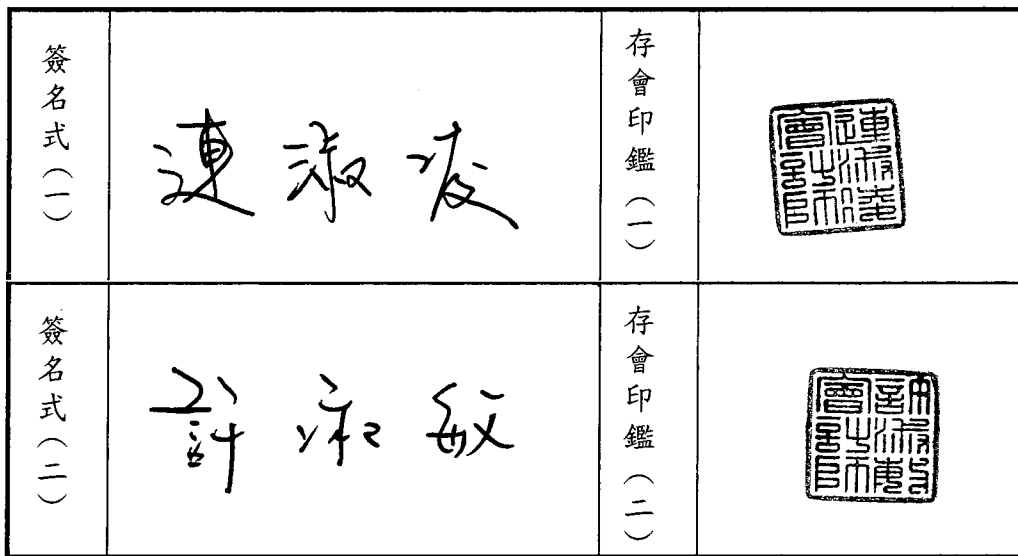 簽名式(一)
連淑凌
存會印鑑(一)
連淑凌
會計師
簽名式(二)
許淑敏
存會印鑑(二)
許淑敏
會計師